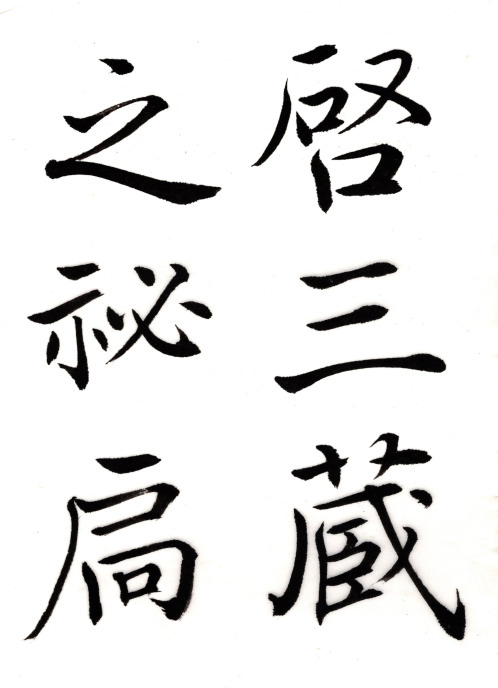 啓三蔵
之祕扃